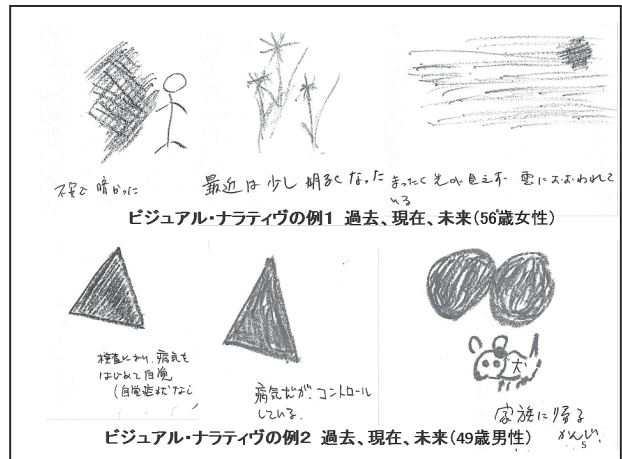 不安で暗かった
最近は少し明るくなった
まったく先が見えず 雲におおわれて
いる
ビジュアル・ナラティヴの例1 過去、現在、未来(56歳女性)
検査により、病気を
はじめて自覚
(自覚症状なし)
病気だが、コントロール
している。
犬
家族に帰る
かんじ。
ビジュアル・ナラティヴの例2 過去、現在、未来(49歳男性)
5